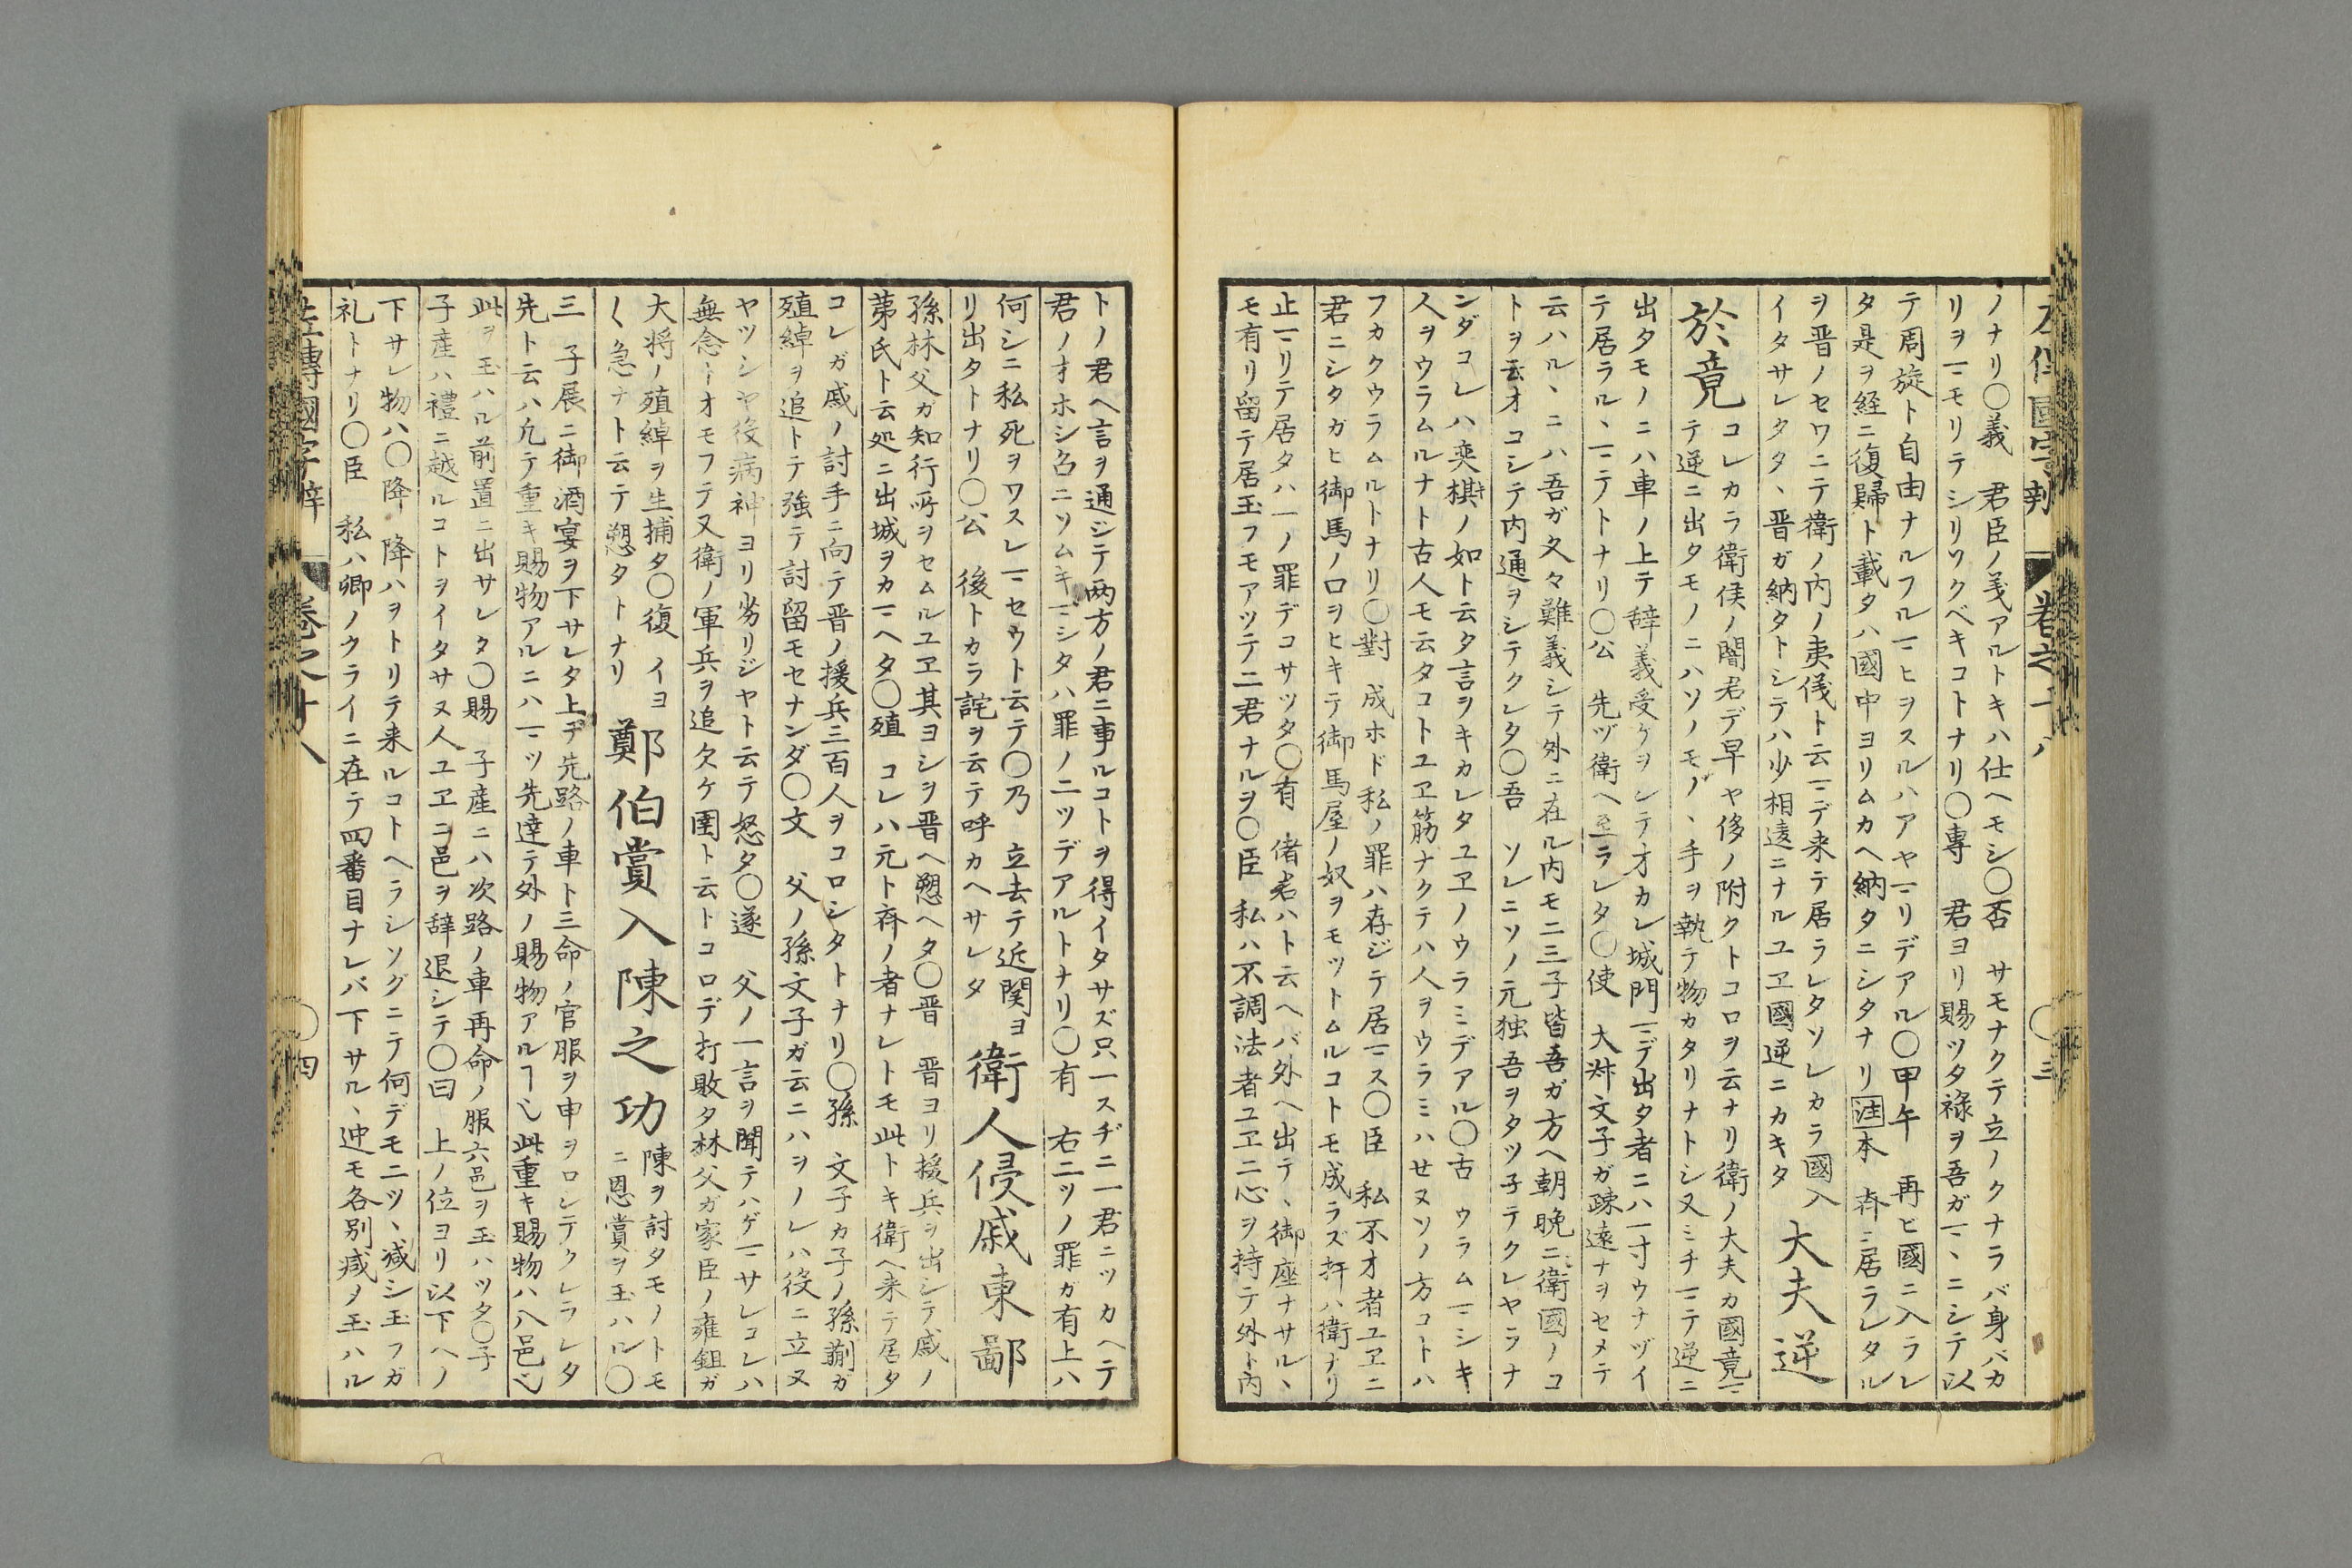 ノナリ〇義 君臣ノ義アルトキハ仕ヘモシ〇否 サモナクテ立ノクナラバ身バカ
リヲマモリテシリゾクベキコトナリ〇専 君ヨリ賜ツタ禄ヲ吾ガマヽニシテ以
テ周旋ト自由ナルフルマヒヲスルハアヤマリデアル〇甲午 再ヒ國ニ入ラレ
タ是ヲ経ニ復歸ト載タハ國中ヨリムカヘ納タニシタナリ注本 斉ニ居ラレタル
ヲ晋ノセワニテ衛ノ内ノ夷儀ト云マデ来テ居ラレタソレカラ國入
イタサレタタヽ晋ガ納タトシテハ少相違ニナルユヱ國逆ニカキタ
大夫逆
於竟
コレカラ衛侯ノ闇君デ早ヤ侈ノ附クトコロヲ云ナリ衛ノ大夫カ國竟マ
テ逆ニ出タモノニハソノモノヽ手ヲ執テ物カタリナトシ又ミチマテ逆ニ
出タモノニハ車ノ上テ辞義受ケヲシテオカレ城門マデ出タ者ニハ一寸ウナヅイ
テ居ラルヽマテトナリ〇公 先ヅ衛ヘ至ラレタ〇使 大叔文子ガ疎遠ナヲセメテ
云ハルヽニハ吾ガ久々難義シテ外ニ在ル内モ二三子皆吾ガ方ヘ朝晩ニ衛國ノコ
トヲ云オコシテ内通ヲシテクレタ〇吾 ソレニソノ元独吾ヲタツ子テクレヤラナ
ンダコレハ奕棋ノ如ト云タ言ヲキカレタユヱノウラミデアル〇古 ウラムマシキ
人ヲウラムルナト古人モ云タコトユヱ筋ナクテハ人ヲウラミハせヌソノ方コトハ
フカクウラムルトナリ〇對 成ホド私ノ罪ハ存ジテ居マス〇臣 私不才者ユヱニ
君ニシタガヒ御馬ノ口ヲヒキテ御馬屋ノ奴ヲモツトムルコトモ成ラズ扞ハ衛ナリ
止マリテ居タハ一ノ罪デコサツタ〇有 偖君ハト云ヘバ外ヘ出テヽ御座ナサルヽ
モ有リ留テ居玉フモアツテ二君ナルヲ〇臣 私ハ不調法者ユヱ二心ヲ持テ外ト内
トノ君ヘ言ヲ通ジテ両方ノ君ニ事ルコトヲ得イタサズ只一スヂニ一君ニツカヘテ
君ノオホシ召ニソムキマシタハ罪ノ二ツデアルトナリ〇有 右二ツノ罪ガ有上ハ
何シニ私死ヲワスレマセウト云テ〇乃 立去テ近関ヨ
リ出タトナリ〇公 後トカラ詫ヲ云テ呼カヘサレタ
衛人侵戚東鄙
孫林父ガ知行所ヲセムルユヱ其ヨシヲ晋ヘ愬ヘタ〇晋 晋ヨリ援兵ヲ出シテ戚ノ
茅氏ト云処ニ出城ヲカマヘタ〇殖 コレハ元ト斉ノ者ナレトモ此トキ衛ヘ来テ居タ
コレガ戚ノ討手ニ向テ晋ノ援兵三百人ヲコロシタトナリ〇孫 文子カ子ノ孫蒯ガ
殖綽ヲ追トテ強テ討留モセナンダ〇文 父ノ孫文子ガ云ニハヲノレハ役ニ立ヌ
ヤツシヤ役病神ヨリ劣リジヤト云テ怒タ〇遂 父ノ一言ヲ聞テハゲマサレコレハ
無念トオモフテ又衛ノ軍兵ヲ追欠ケ圉ト云トコロデ打敗タ林父ガ家臣ノ雍鉏ガ
大将ノ殖綽ヲ生捕タ〇復 イヨ
〱急ナト云テ愬タトナリ
鄭伯賞入陳之功
陳ヲ討タモノトモ
ニ恩賞ヲ玉ハル〇
三 子展ニ御酒宴ヲ下サレタ上デ先路ノ車ト三命ノ官服ヲ申ヲロシテクレラレタ
先ト云ハ凡テ重キ賜物アルニハマヅ先達テ外ノ賜物アルヿ也此重キ賜物ハ八邑也
此ヲ玉ハル前置ニ出サレタ〇賜 子産ニハ次路ノ車再命ノ服六邑ヲ玉ハツタ〇子
子産ハ禮ニ越ルコトヲイタサヌ人ユヱニ邑ヲ辞退シテ〇曰 上ノ位ヨリ以下ヘノ
下サレ物ハ〇降 降ハヲトリテ来ルコトヘラシソグニテ何デモ二ツヽ減シ玉フガ
礼トナリ〇臣 私ハ卿ノクライニ在テ四番目ナレバ下サルヽ迚モ各別減ノ玉ハル
左傳國字辯 巻之十八 〇四